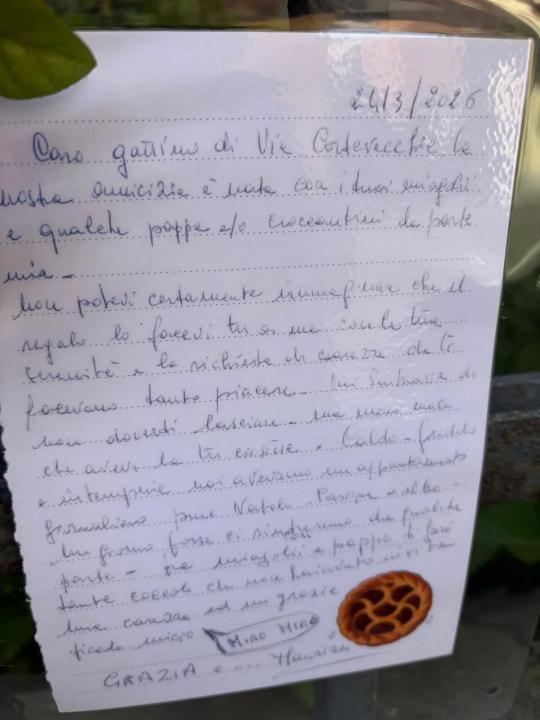 24/3/2026
Caro gattino di Via Cortevecchie la
nostra amicizia è nata con i tuoi miagolii
e qualche pappa e/o croccantini da parte
mia -
Non potevi certamente immaginare che il
regalo lo facevi tu a me con la tua
serenità e la richiesta di carezze che ti
facevano tanto piacere - mi sembrava di
non doverti lasciare - ma meno male
che avevi la tua casetta - Caldo - freddo
e intemperie noi avevamo un appuntamento
giornaliero pure Natale - Pasqua - altro -
Un giorno forse ci rivedremo da qualche
parte - tra miagolii e pappa ti farò
tante coccole che non hai avuto in vita
una carezza ed un grazie
piccolo micio MIAO MIAO
GRAZIA e ... Maurizio